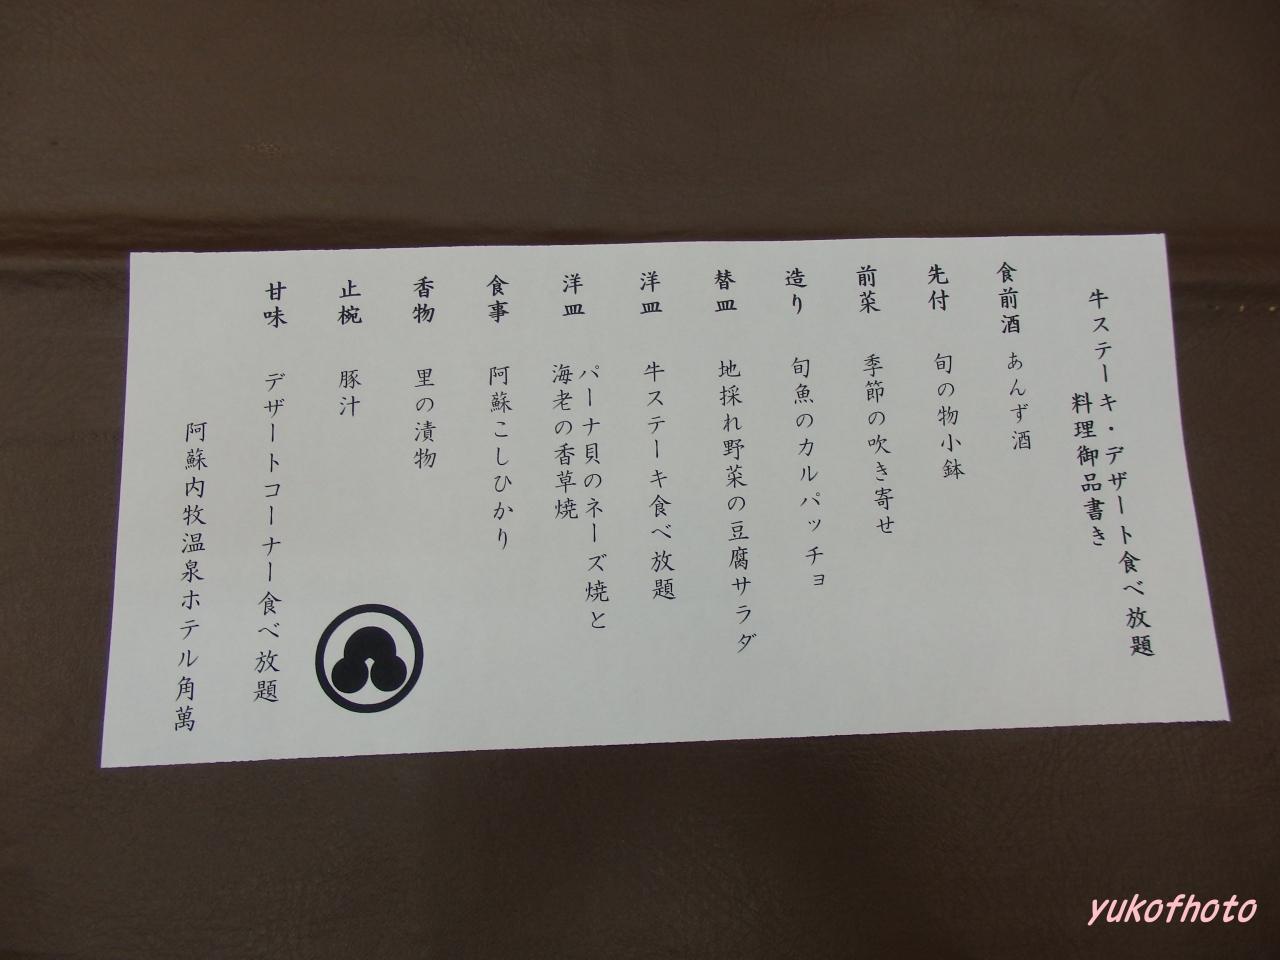 牛ステーキ・デザート食べ放題
料理御品書き
食前酒 あんず酒
先付 旬の物小鉢
前菜 季節の吹き寄せ
造り 旬魚のカルパッチョ
替皿 地採れ野菜の豆腐サラダ
洋皿 牛ステーキ食べ放題
洋皿 パーナ貝のネーズ焼と
海老の香草焼
食事 阿蘇こしひかり
香物 里の漬物
止椀 豚汁
甘味 デザートコーナー食べ放題
阿蘇内牧温泉ホテル角萬
yukofhoto